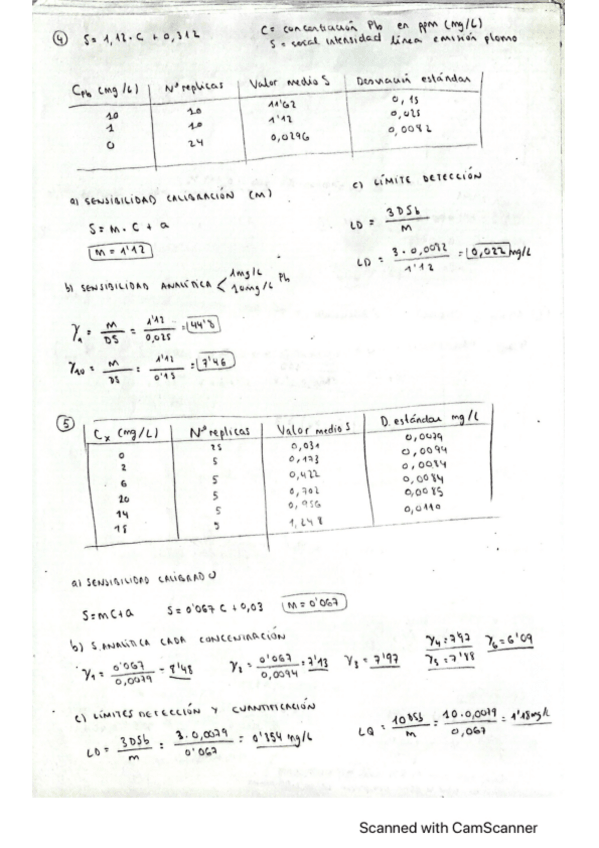 ④ S = 1,12·C + 0,312
C = concentración Pb en ppm (mg/L)
S = señal intensidad línea emisión plomo
CPb (mg/L) Nº replicas Valor medio S Desviación estándar
10 10 11'62 0,15
1 10 1'12 0,025
0 24 0,0296 0,0082
a) SENSIBILIDAD CALIBRACIÓN (M)
S = M·C + a
M = 1'12
b) SENSIBILIDAD ANALÍTICA < 1mg/L 10mg/L Pb
γ1 = M/DS = 1'12/0,025 = 44'8
γ10 = M/DS = 1'12/0'15 = 7'46
c) LÍMITE DETECCIÓN
LD = 3DSb/M
LD = 3·0,0082/1'12 = 0,022 mg/L
⑤ Cx (mg/L) Nº replicas Valor medio S D. estándar mg/L
0 25 0,031 0,0079
2 5 0,173 0,0094
6 5 0,422 0,0084
10 5 0,702 0,0084
14 5 0,956 0,0085
18 5 1,248 0,0110
a) SENSIBILIDAD CALIBRADO
S = mC+a S = 0'067 C + 0,03 M = 0'067
b) S. ANALÍTICA CADA CONCENTRACIÓN
γ1 = 0'067/0,0079 = 8'48 γ2 = 0'067/0,0094 = 7'13 γ3 = 7'97 γ4 = 7'97 γ5 = 7'88 γ6 = 6'09
c) LÍMITES DETECCIÓN Y CUANTIFICACIÓN
LD = 3DSb/m = 3·0,0079/0'067 = 0'354 mg/L LQ = 10DSb/m = 10·0,0079/0,067 = 1'18mg/L
Scanned with CamScanner